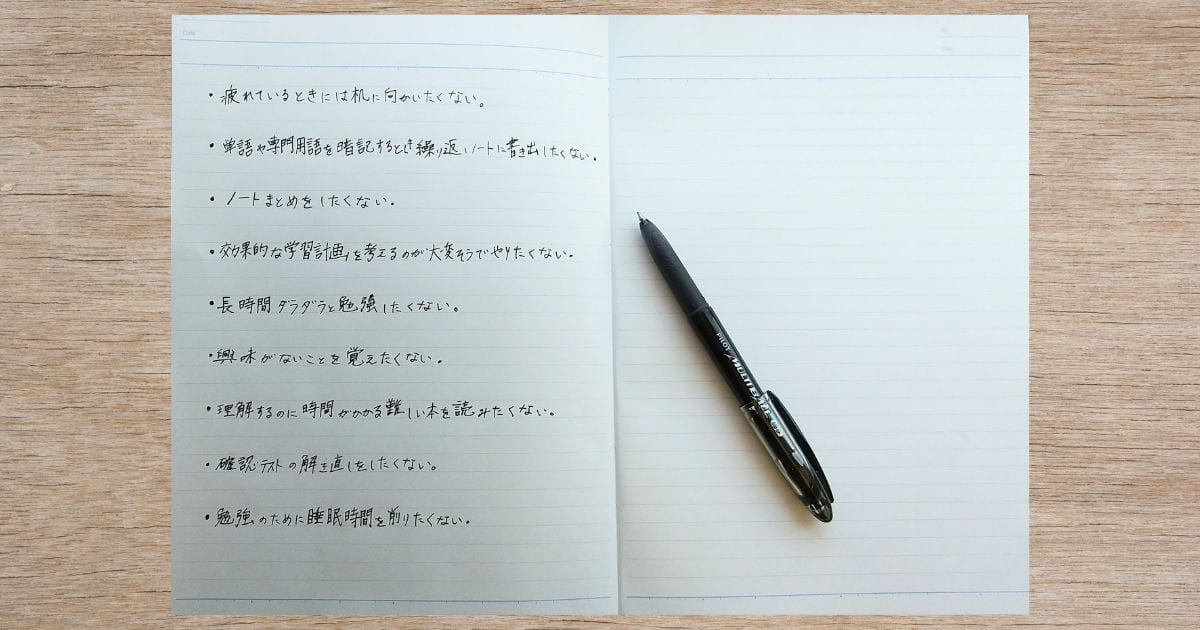 Date
No.
Date
・疲れているときには机に向かいたくない。
・単語や専門用語を暗記するとき繰り返しノートに書き出したくない。
・ノートまとめをしたくない。
・効果的な学習計画を考えるのが大変そうでやりたくない。
・長時間ダラダラと勉強したくない。
・興味がないことを覚えたくない。
・理解するのに時間がかかる難しい本を読みたくない。
・確認テストの解き直しをしたくない。
・勉強のために睡眠時間を削りたくない。
PILOT MULTIBALL